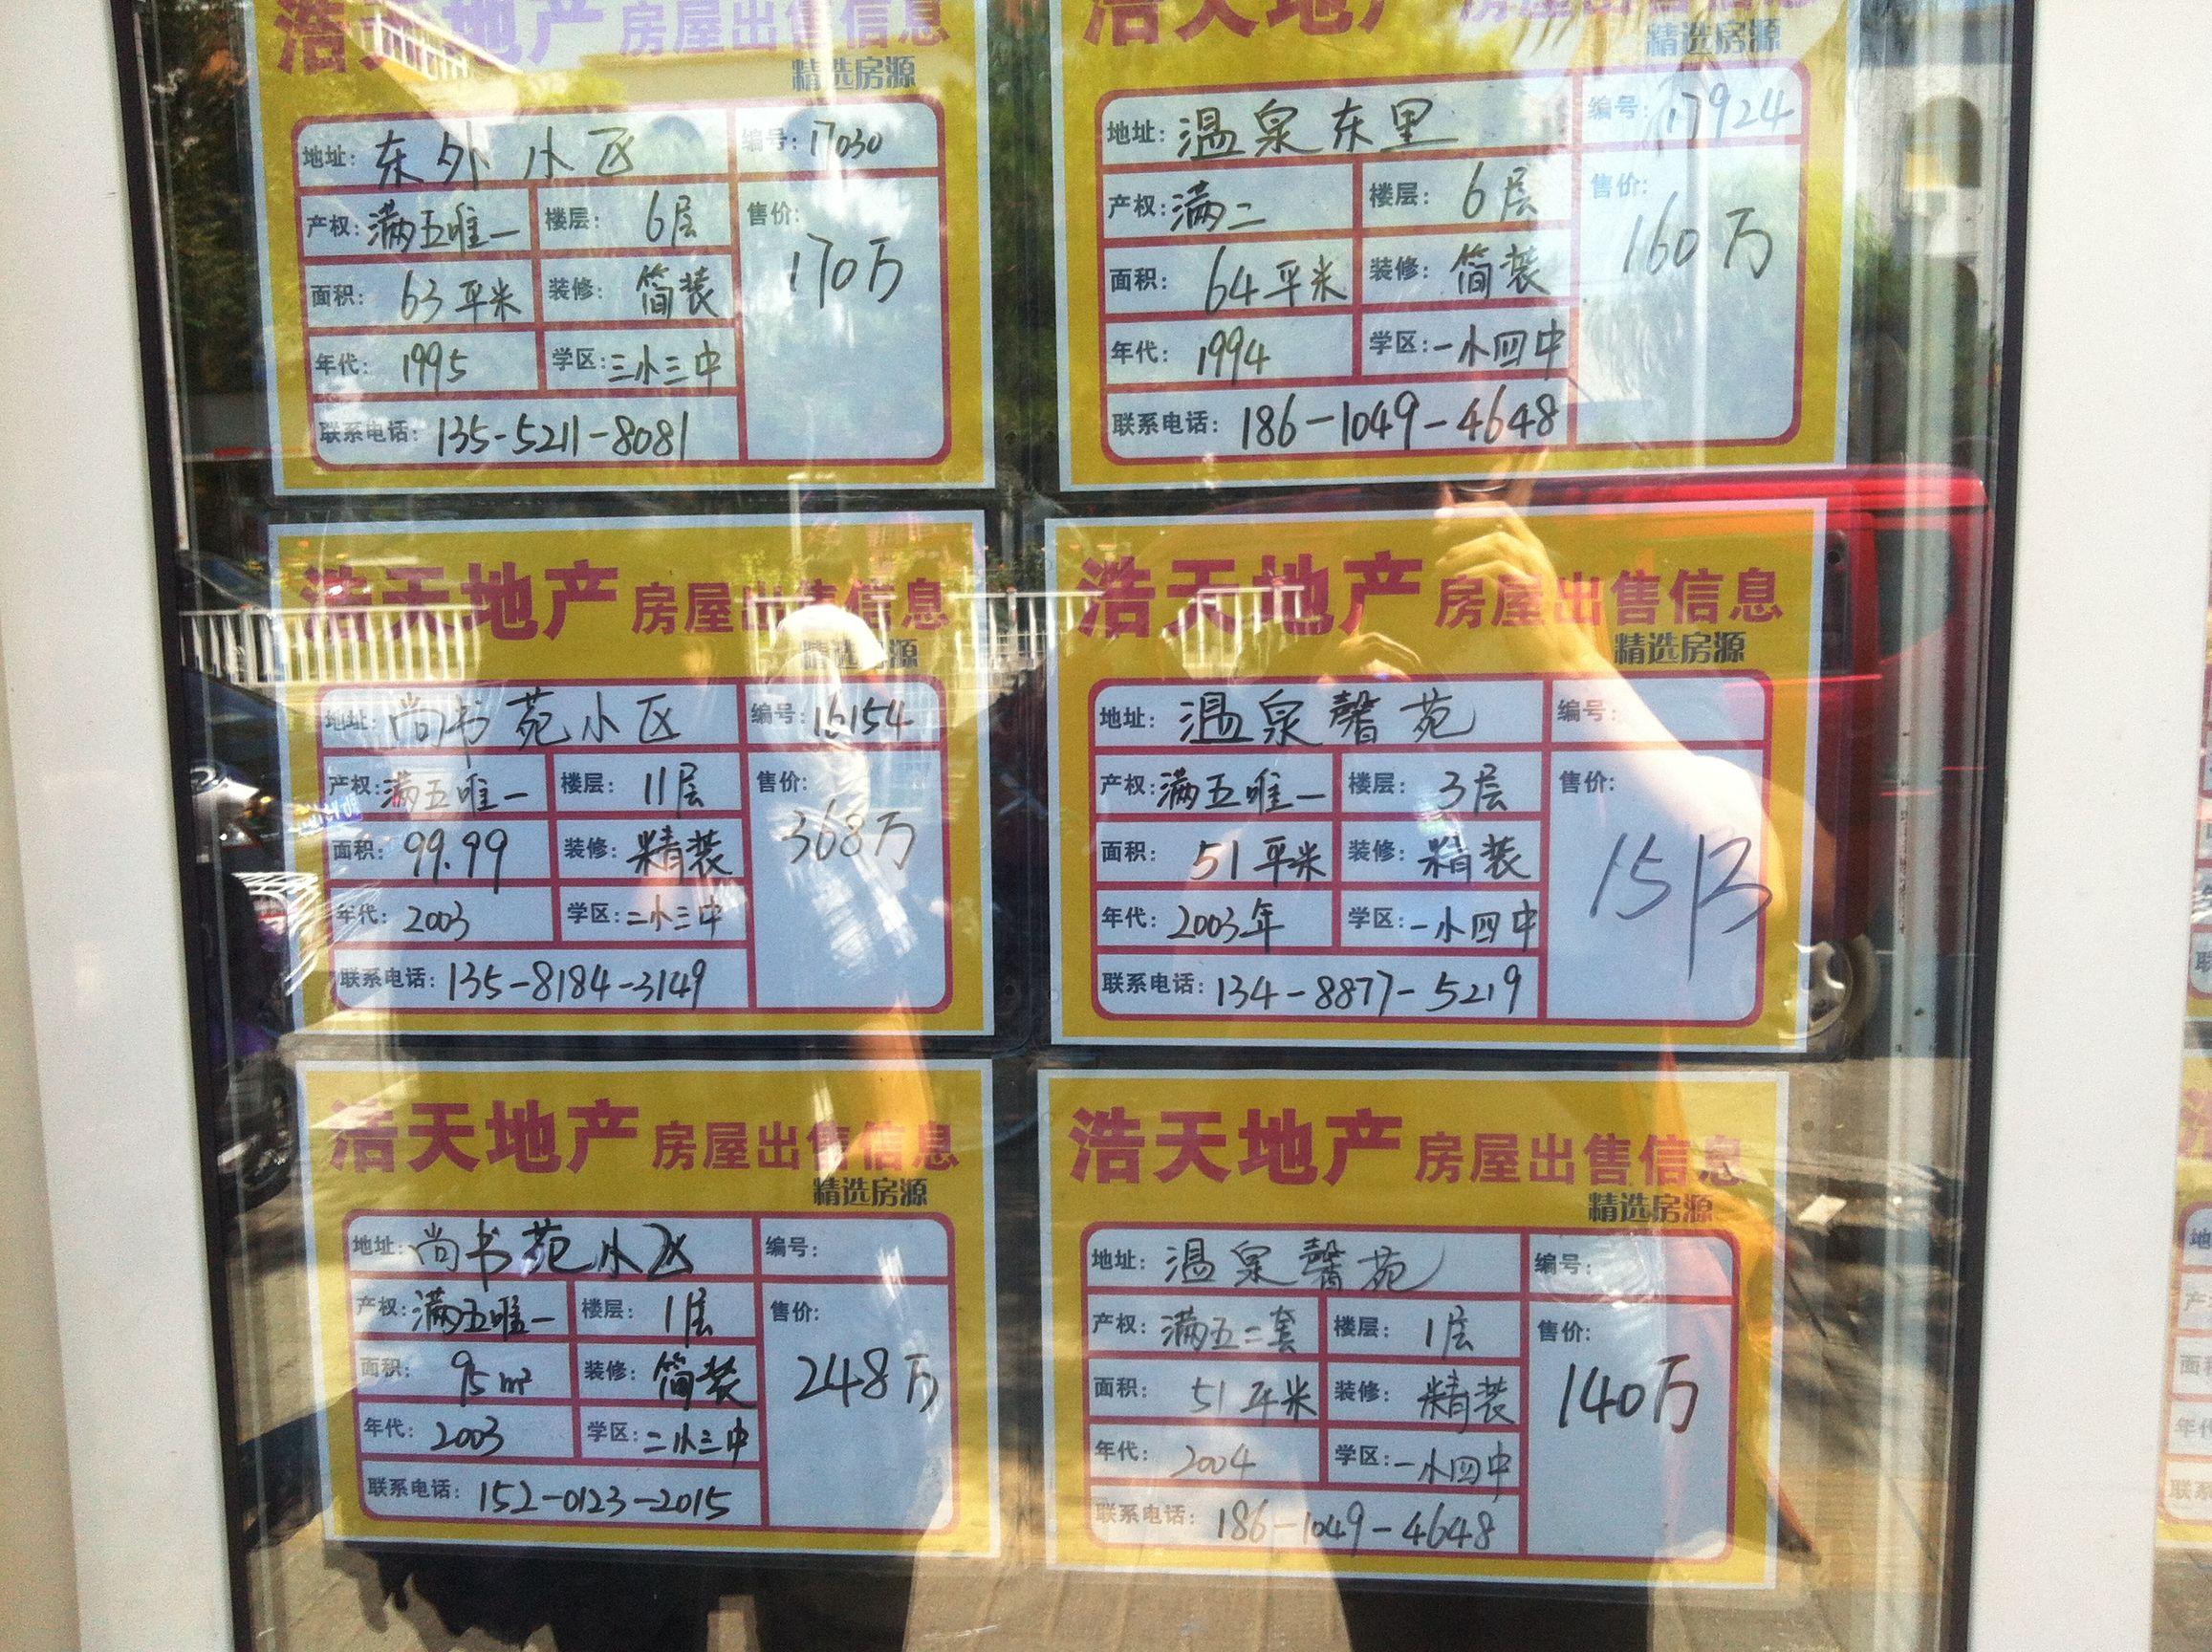 浩天地产 房屋出售信息
精选房源
地址: 东外小区 编号: 17030
产权: 满五唯一 楼层: 6层 售价: 170万
面积: 63平米 装修: 简装
年代: 1995 学区: 三小三中
联系电话: 135-5211-8081
浩天地产 房屋出售信息
精选房源
地址: 温泉东里 编号: 17924
产权: 满二 楼层: 6层 售价: 160万
面积: 64平米 装修: 简装
年代: 1994 学区: 一小四中
联系电话: 186-1049-4648
浩天地产 房屋出售信息
精选房源
地址: 尚书苑小区 编号: 16154
产权: 满五唯一 楼层: 11层 售价: 368万
面积: 99.99 装修: 精装
年代: 2003 学区: 二小三中
联系电话: 135-8184-3149
浩天地产 房屋出售信息
精选房源
地址: 温泉馨苑 编号:
产权: 满五唯一 楼层: 3层 售价:
面积: 51平米 装修: 精装
年代: 2003年 学区: 一小四中
联系电话: 134-8877-5219
浩天地产 房屋出售信息
精选房源
地址: 尚书苑小区 编号:
产权: 满五唯一 楼层: 1层 售价: 248万
面积: 95m² 装修: 简装
年代: 2003 学区: 二小三中
联系电话: 152-0123-2015
浩天地产 房屋出售信息
精选房源
地址: 温泉馨苑 编号:
产权: 满五二套 楼层: 1层 售价: 140万
面积: 51平米 装修: 精装
年代: 2004 学区: 一小四中
联系电话: 186-1049-4648